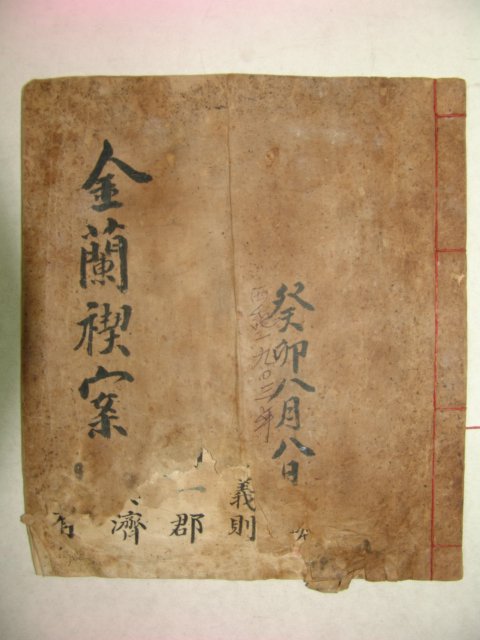 癸卯八月八日
西紀一九〇三年
金蘭禊案
義則
一郡
濟